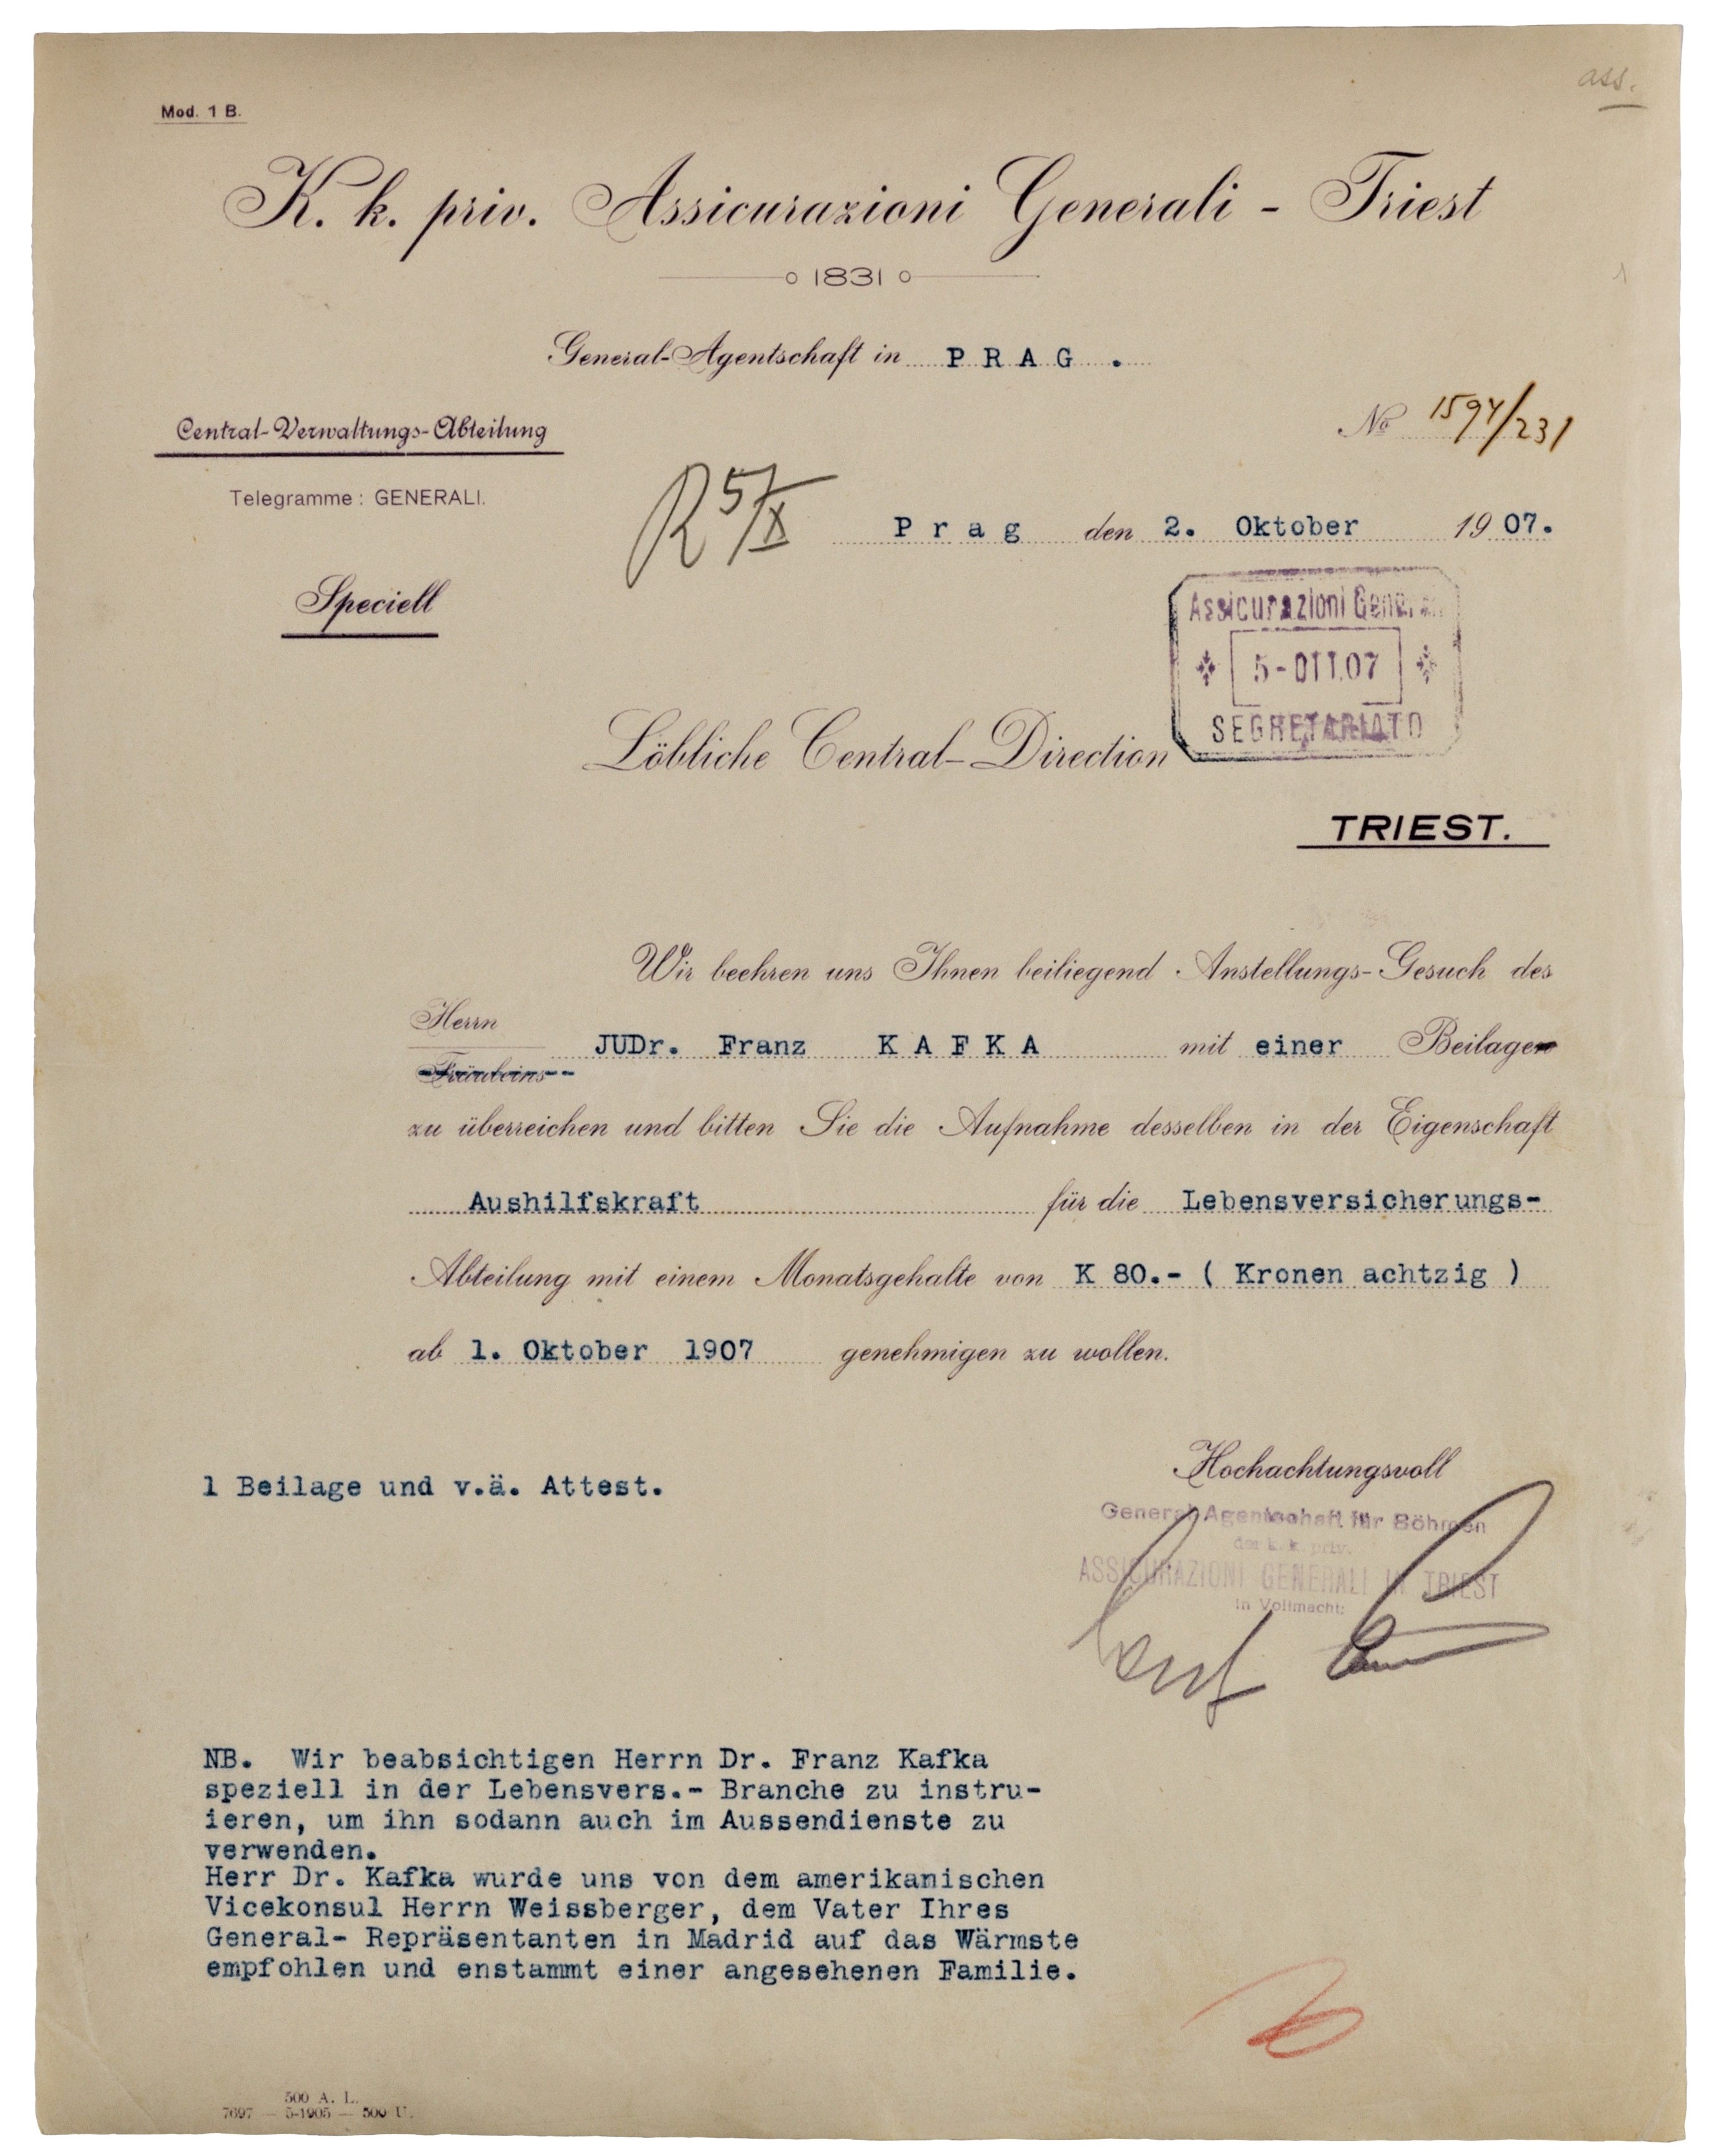 ass.
Mod. 1 B.
K. k. priv. Assicurazioni Generali - Triest
1831
General-Agentschaft in P R A G .
Central-Verwaltungs-Abteilung
No 1594/231
Telegramme: GENERALI.
R 5/X
P r a g den 2. Oktober 1907.
Speciell
Assicurazioni Generali
5-OTT.07
SEGRETARIATO
Löbliche Central-Direction
TRIEST.
Wir beehren uns Ihnen beiliegend Anstellungs-Gesuch des
Herrn
JUDr. Franz K A F K A mit einer Beilagen
Fräuleins
zu überreichen und bitten Sie die Aufnahme desselben in der Eigenschaft
Aushilfskraft für die Lebensversicherungs-
Abteilung mit einem Monatsgehalte von K 80.- ( Kronen achtzig )
ab 1. Oktober 1907 genehmigen zu wollen.
Hochachtungsvoll
1 Beilage und v.ä. Attest.
General-Agentschaft für Böhmen
der k. k. priv.
ASSICURAZIONI GENERALI IN TRIEST
in Vollmacht:
NB. Wir beabsichtigen Herrn Dr. Franz Kafka
speziell in der Lebensvers.- Branche zu instru-
ieren, um ihn sodann auch im Aussendienste zu
verwenden.
Herr Dr. Kafka wurde uns von dem amerikanischen
Vicekonsul Herrn Weissberger, dem Vater Ihres
General- Repräsentanten in Madrid auf das Wärmste
empfohlen und enstammt einer angesehenen Familie.
500 A. L.
7697 — 5-1905 — 500 U.